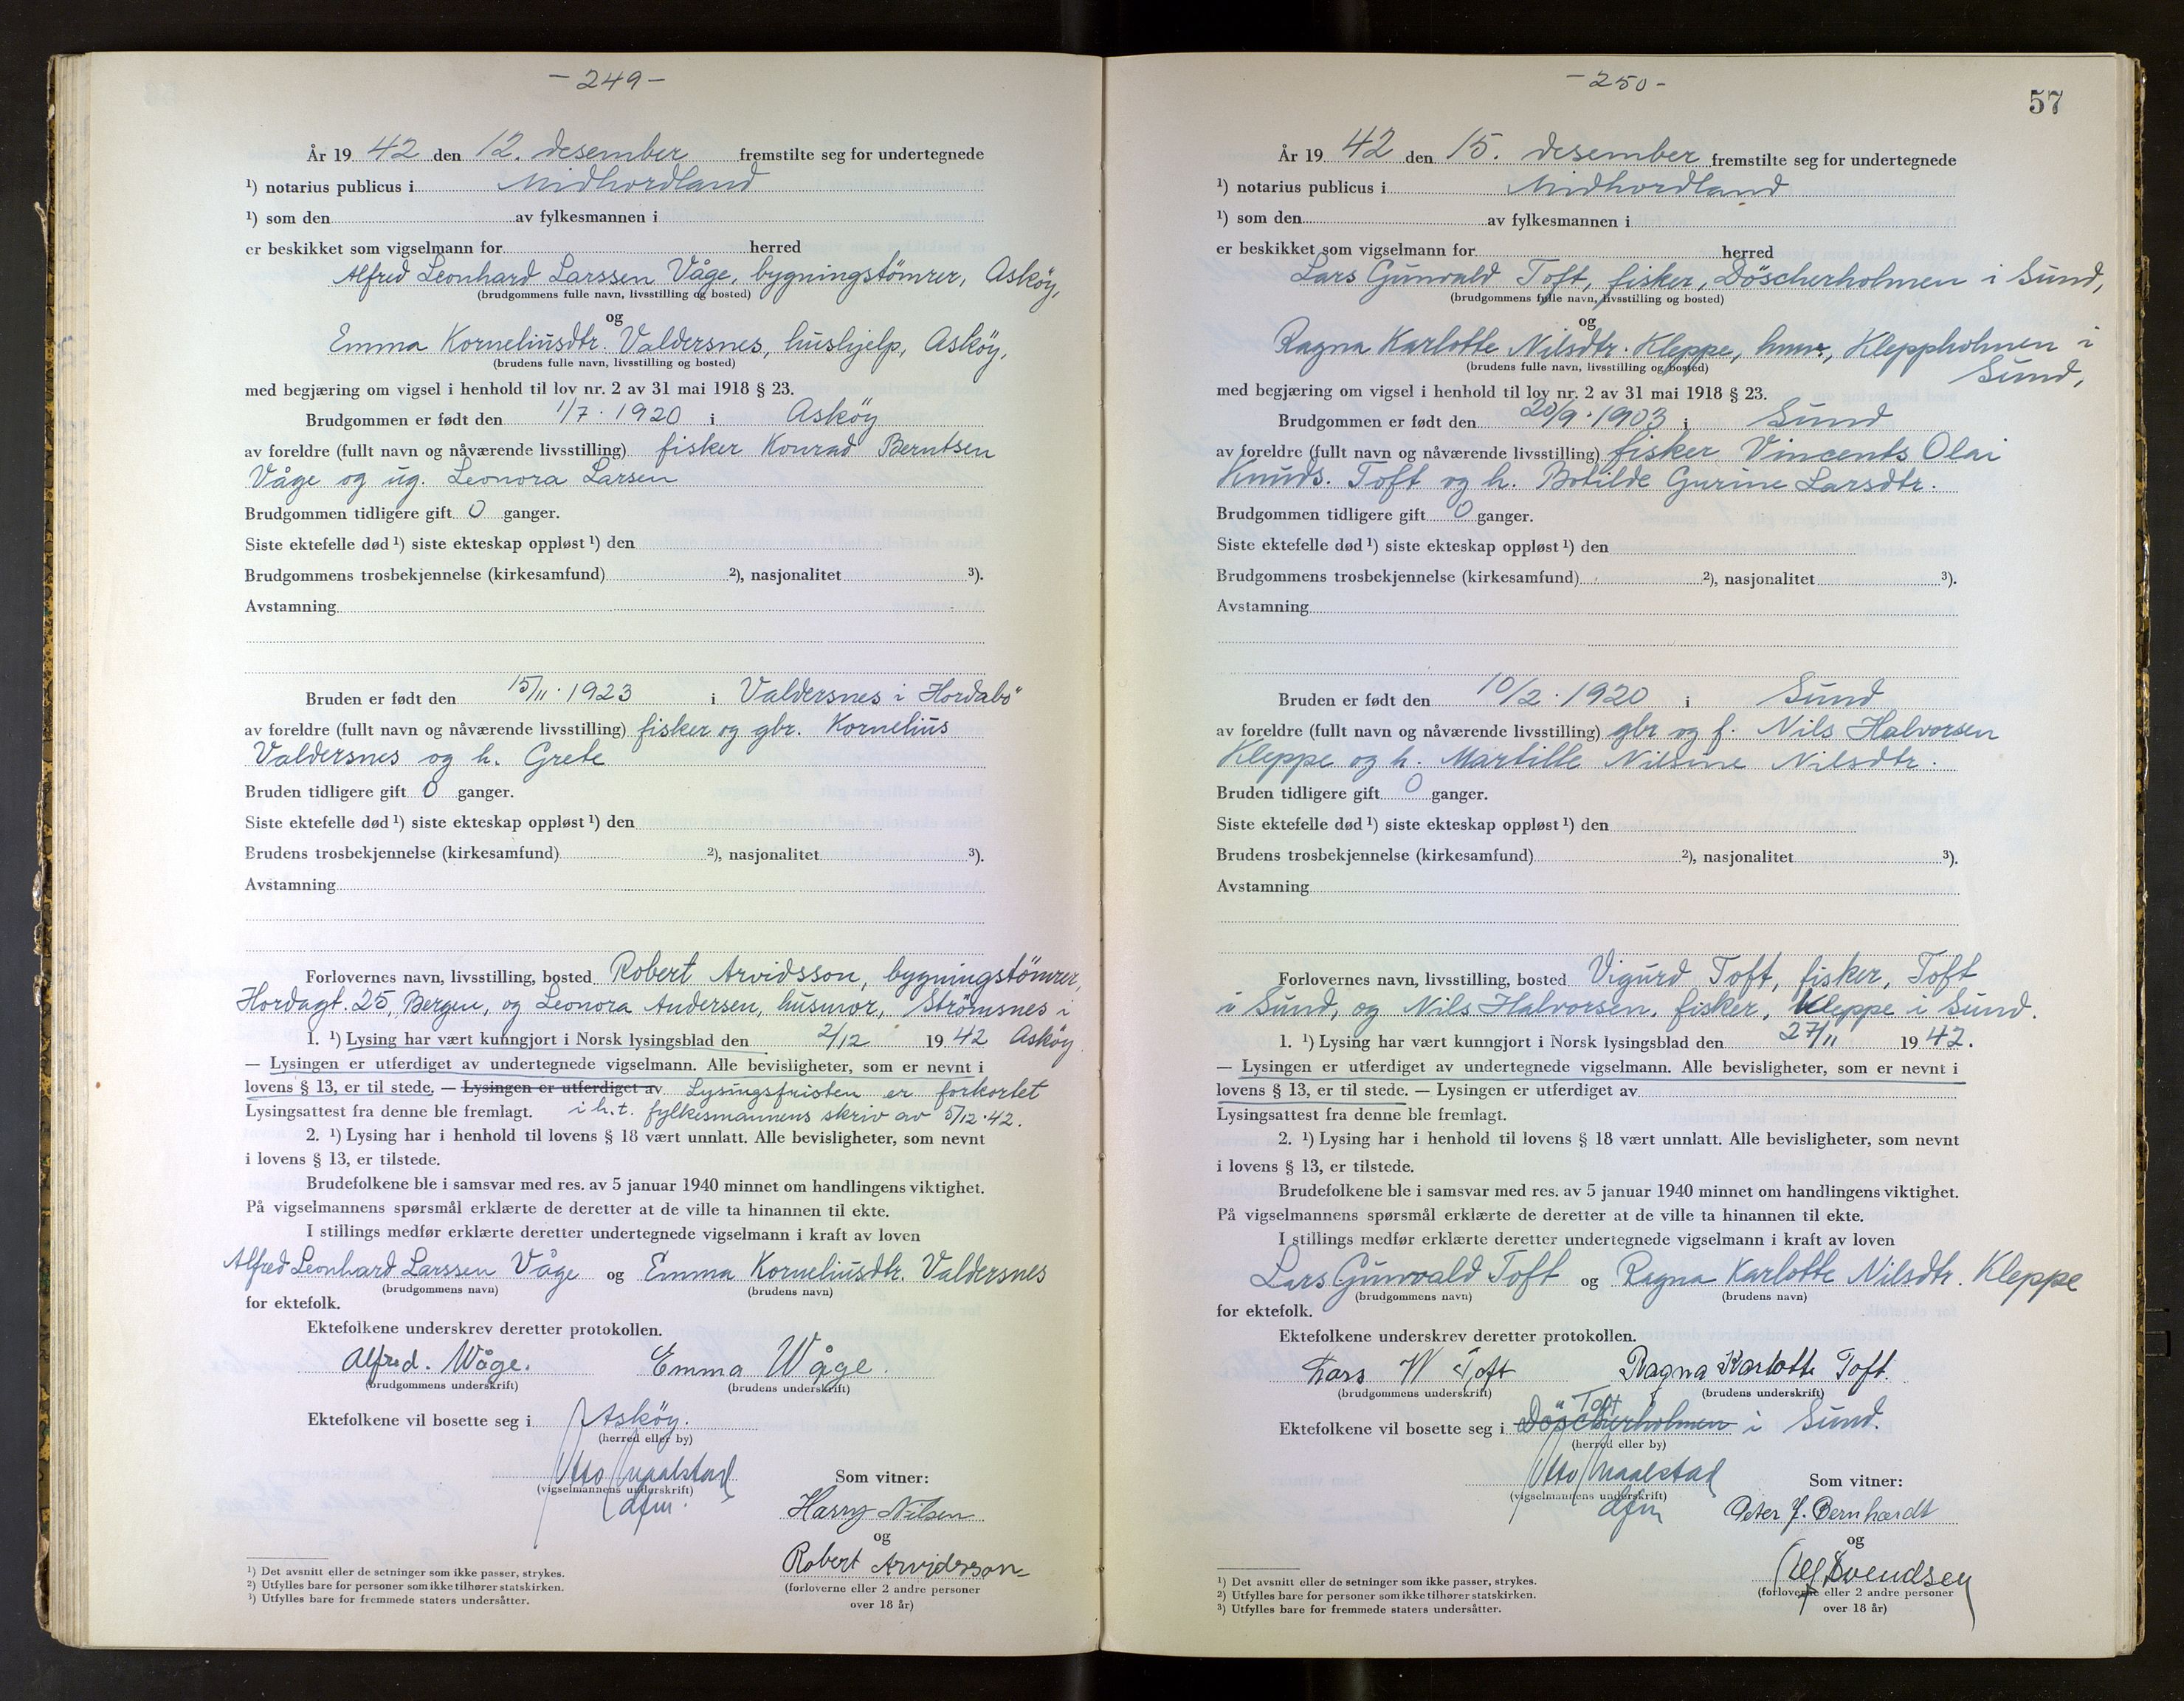 - 249 -
År 19 42 den 12. desember fremstilte seg for undertegnede
¹) notarius publicus i Midhordland
¹) som den av fylkesmannen i
er beskikket som vigselmann for herred
Alfred Leonhard Larssen Våge, bygningstömrer, Asköy,
(brudgommens fulle navn, livsstilling og bosted)
og
Emma Korneliusdtr. Valdersnes, hushjelp, Asköy,
(brudens fulle navn, livsstilling og bosted)
med begjæring om vigsel i henhold til lov nr. 2 av 31 mai 1918 § 23.
Brudgommen er født den 1/7. 1920 i Asköy
av foreldre (fullt navn og nåværende livsstilling) fisker Konrad Berntsen
Våge og ug. Leonora Larsen
Brudgommen tidligere gift 0 ganger.
Siste ektefelle død ¹) siste ekteskap oppløst ¹) den
Brudgommens trosbekjennelse (kirkesamfund) ²), nasjonalitet ³).
Avstamning
Bruden er født den 15/11. 1923 i Valdersnes i Hordabö
av foreldre (fullt navn og nåværende livsstilling) fisker og gbr. Kornelius
Valdersnes og h. Grete
Bruden tidligere gift 0 ganger.
Siste ektefelle død ¹) siste ekteskap oppløst ¹) den
Brudens trosbekjennelse (kirkesamfund) ²), nasjonalitet ³).
Avstamning
Forlovernes navn, livsstilling, bosted Robert Arvidsson, bygningstömrer,
Hordagt. 25, Bergen, og Leonora Andersen, husmor, Strömsnes i
1. ¹) Lysing har vært kunngjort i Norsk lysingsblad den 2/12 19 42 Asköy
— Lysingen er utferdiget av undertegnede vigselmann. Alle bevisligheter, som er nevnt i
lovens § 13, er til stede. — Lysingen er utferdiget av Lysingsfristen er forkortet
Lysingsattest fra denne ble fremlagt. i h.t. fylkesmannens skriv av 5/12.42.
2. ¹) Lysing har i henhold til lovens § 18 vært unnlatt. Alle bevisligheter, som nevnt
i lovens § 13, er tilstede.
Brudefolkene ble i samsvar med res. av 5 januar 1940 minnet om handlingens viktighet.
På vigselmannens spørsmål erklærte de deretter at de ville ta hinannen til ekte.
I stillings medfør erklærte deretter undertegnede vigselmann i kraft av loven
Alfred Leonhard Larssen Våge og Emma Korneliusdtr. Valdersnes
(brudgommens navn) (brudens navn)
for ektefolk.
Ektefolkene underskrev deretter protokollen.
Alfred. Wåge. Emma Wåge.
(brudgommens underskrift) (brudens underskrift)
Ektefolkene vil bosette seg i Asköy.
(herred eller by)
Otto Maalstad Som vitner:
(vigselmannens underskrift)
dfm. Harry Nilsen
og
Robert Arvidsson
(forloverne eller 2 andre personer
over 18 år)
¹) Det avsnitt eller de setninger som ikke passer, strykes.
²) Utfylles bare for personer som ikke tilhører statskirken.
³) Utfylles bare for fremmede staters undersåtter.
- 250 -
57
År 19 42 den 15. desember fremstilte seg for undertegnede
¹) notarius publicus i Midhordland
¹) som den av fylkesmannen i
er beskikket som vigselmann for herred
Lars Gunvald Toft, fisker, Döscherholmen i Sund,
(brudgommens fulle navn, livsstilling og bosted)
og
Ragna Karlotte Nilsdtr. Kleppe, Kleppholmen i
(brudens fulle navn, livsstilling og bosted) Sund,
med begjæring om vigsel i henhold til lov nr. 2 av 31 mai 1918 § 23.
Brudgommen er født den 20/9. 1903 i Sund
av foreldre (fullt navn og nåværende livsstilling) fisker Vincents Olai
Knuds. Toft og h. Botilde Gurine Larsdtr.
Brudgommen tidligere gift 0 ganger.
Siste ektefelle død ¹) siste ekteskap oppløst ¹) den
Brudgommens trosbekjennelse (kirkesamfund) ²), nasjonalitet ³).
Avstamning
Bruden er født den 10/2. 1920 i Sund
av foreldre (fullt navn og nåværende livsstilling) gbr og f. Nils Halvorsen
Kleppe og h. Martille Nilsine Nilsdtr.
Bruden tidligere gift 0 ganger.
Siste ektefelle død ¹) siste ekteskap oppløst ¹) den
Brudens trosbekjennelse (kirkesamfund) ²), nasjonalitet ³).
Avstamning
Forlovernes navn, livsstilling, bosted Vigurd Toft, fisker, Toft
i Sund, og Nils Halvorsen, fisker, Kleppe i Sund.
1. ¹) Lysing har vært kunngjort i Norsk lysingsblad den 27/11 19 42.
— Lysingen er utferdiget av undertegnede vigselmann. Alle bevisligheter, som er nevnt i
lovens § 13, er til stede. — Lysingen er utferdiget av
Lysingsattest fra denne ble fremlagt.
2. ¹) Lysing har i henhold til lovens § 18 vært unnlatt. Alle bevisligheter, som nevnt
i lovens § 13, er tilstede.
Brudefolkene ble i samsvar med res. av 5 januar 1940 minnet om handlingens viktighet.
På vigselmannens spørsmål erklærte de deretter at de ville ta hinannen til ekte.
I stillings medfør erklærte deretter undertegnede vigselmann i kraft av loven
Lars Gunvald Toft og Ragna Karlotte Nilsdtr. Kleppe
(brudgommens navn) (brudens navn)
for ektefolk.
Ektefolkene underskrev deretter protokollen.
Lars W Toft Ragna Karlotte Toft.
(brudgommens underskrift) (brudens underskrift)
Toft
Ektefolkene vil bosette seg i Döscherholmen i Sund.
(herred eller by)
Otto Maalstad Som vitner:
(vigselmannens underskrift)
dfm Peter J. Bernhardt
og
Svendsen
(forloverne eller 2 andre personer
over 18 år)
¹) Det avsnitt eller de setninger som ikke passer, strykes.
²) Utfylles bare for personer som ikke tilhører statskirken.
³) Utfylles bare for fremmede staters undersåtter.